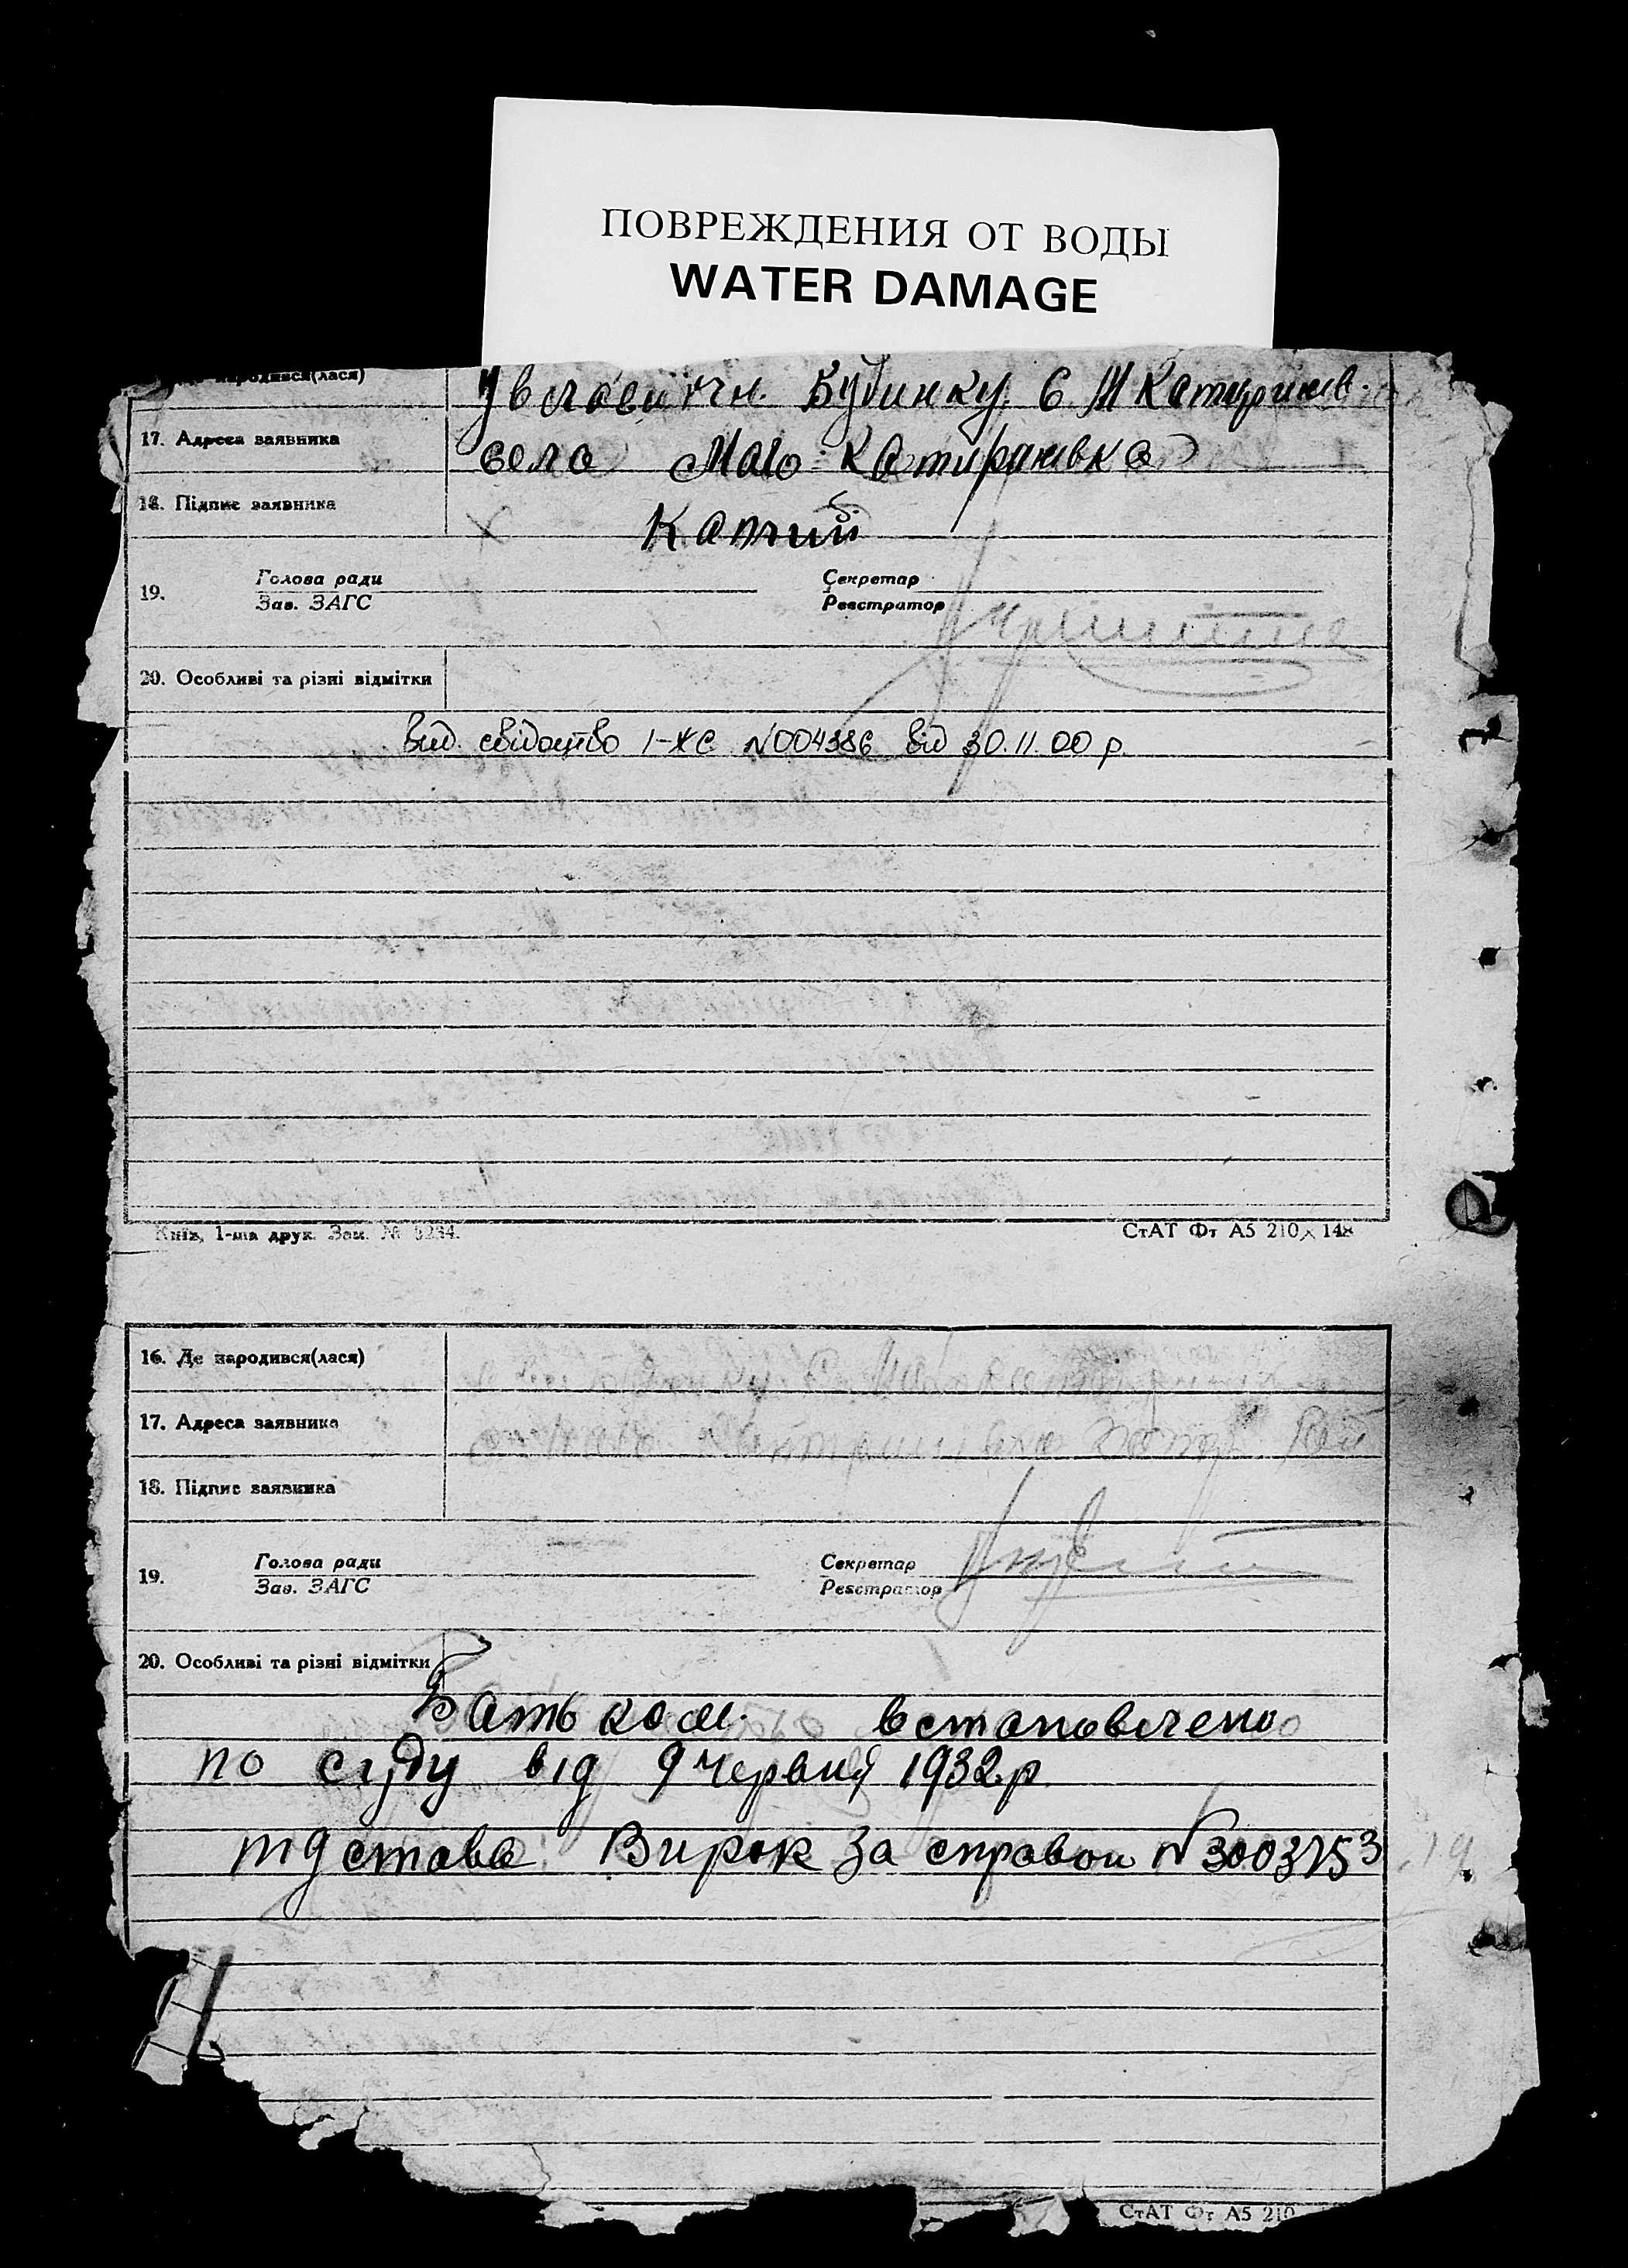 ПОВРЕЖДЕНИЯ ОТ ВОДЫ
WATER DAMAGE
народився(лася)
Будинку. С. М Катеринів.
17. Адреса заявника
село Мало-Катиринівка
18. Підпис заявника
Капчий
19. Голова ради Секретар
Зав. ЗАГС Реєстратор
20. Особливі та різні відмітки
Вид. свідоцтво І-ЖС №004386 від 30.11.00 р.
Київ, 1-ша друк. Зам. № 5234.
СтАТ Фт А5 210×148
16. Де народився(лася)
17. Адреса заявника
18. Підпис заявника
19. Голова ради Секретар
Зав. ЗАГС Реєстратор
20. Особливі та різні відмітки
Батьком встановлено
по суду від 9 червня 1932 р
підстава Вирок за справою №
СтАТ Фт А5 210